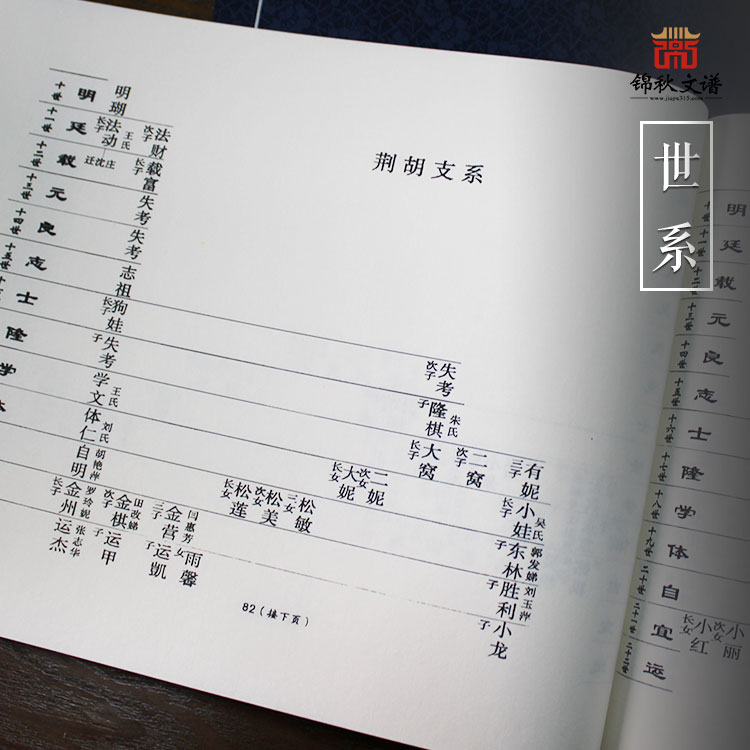 锦秋文谱
www.jiapu315.com
世系
荆胡支系
十世 明 明瑚
十一世 廷 长子 法动 王氏 次子 法财
十二世 载 迁沈庄 长子 载富
十三世 元 失考
十四世 良 失考
十五世 志 志祖
士 长子 狗娃 次子 失考
隆 子 失考 子 隆棋 朱氏
学 学文 王氏 长子 大窝 次子 二窝 三子 有妮
体仁 刘氏 长女 大妮 次女 二妮 长子 小娃 吴氏
自明 胡艳萍 长女 松莲 次女 松美 三女 松敏 子 东林 郭发娣
长子 金州 罗玲妮 次子 金棋 田改娣 三子 金营 闫惠芳 子 胜利 刘玉萍
运杰 张志华 子 运甲 子 运凯 女 雨馨 子 小龙
82(接下页)
十世 明
十一世 廷
十二世 载
十三世 元
十四世 良
十五世 志
十六世 士
十七世 隆
十八世 学
十九世 体
二十世 自
二十一世 宜 长女 小红 次女 小丽
二十二世 运